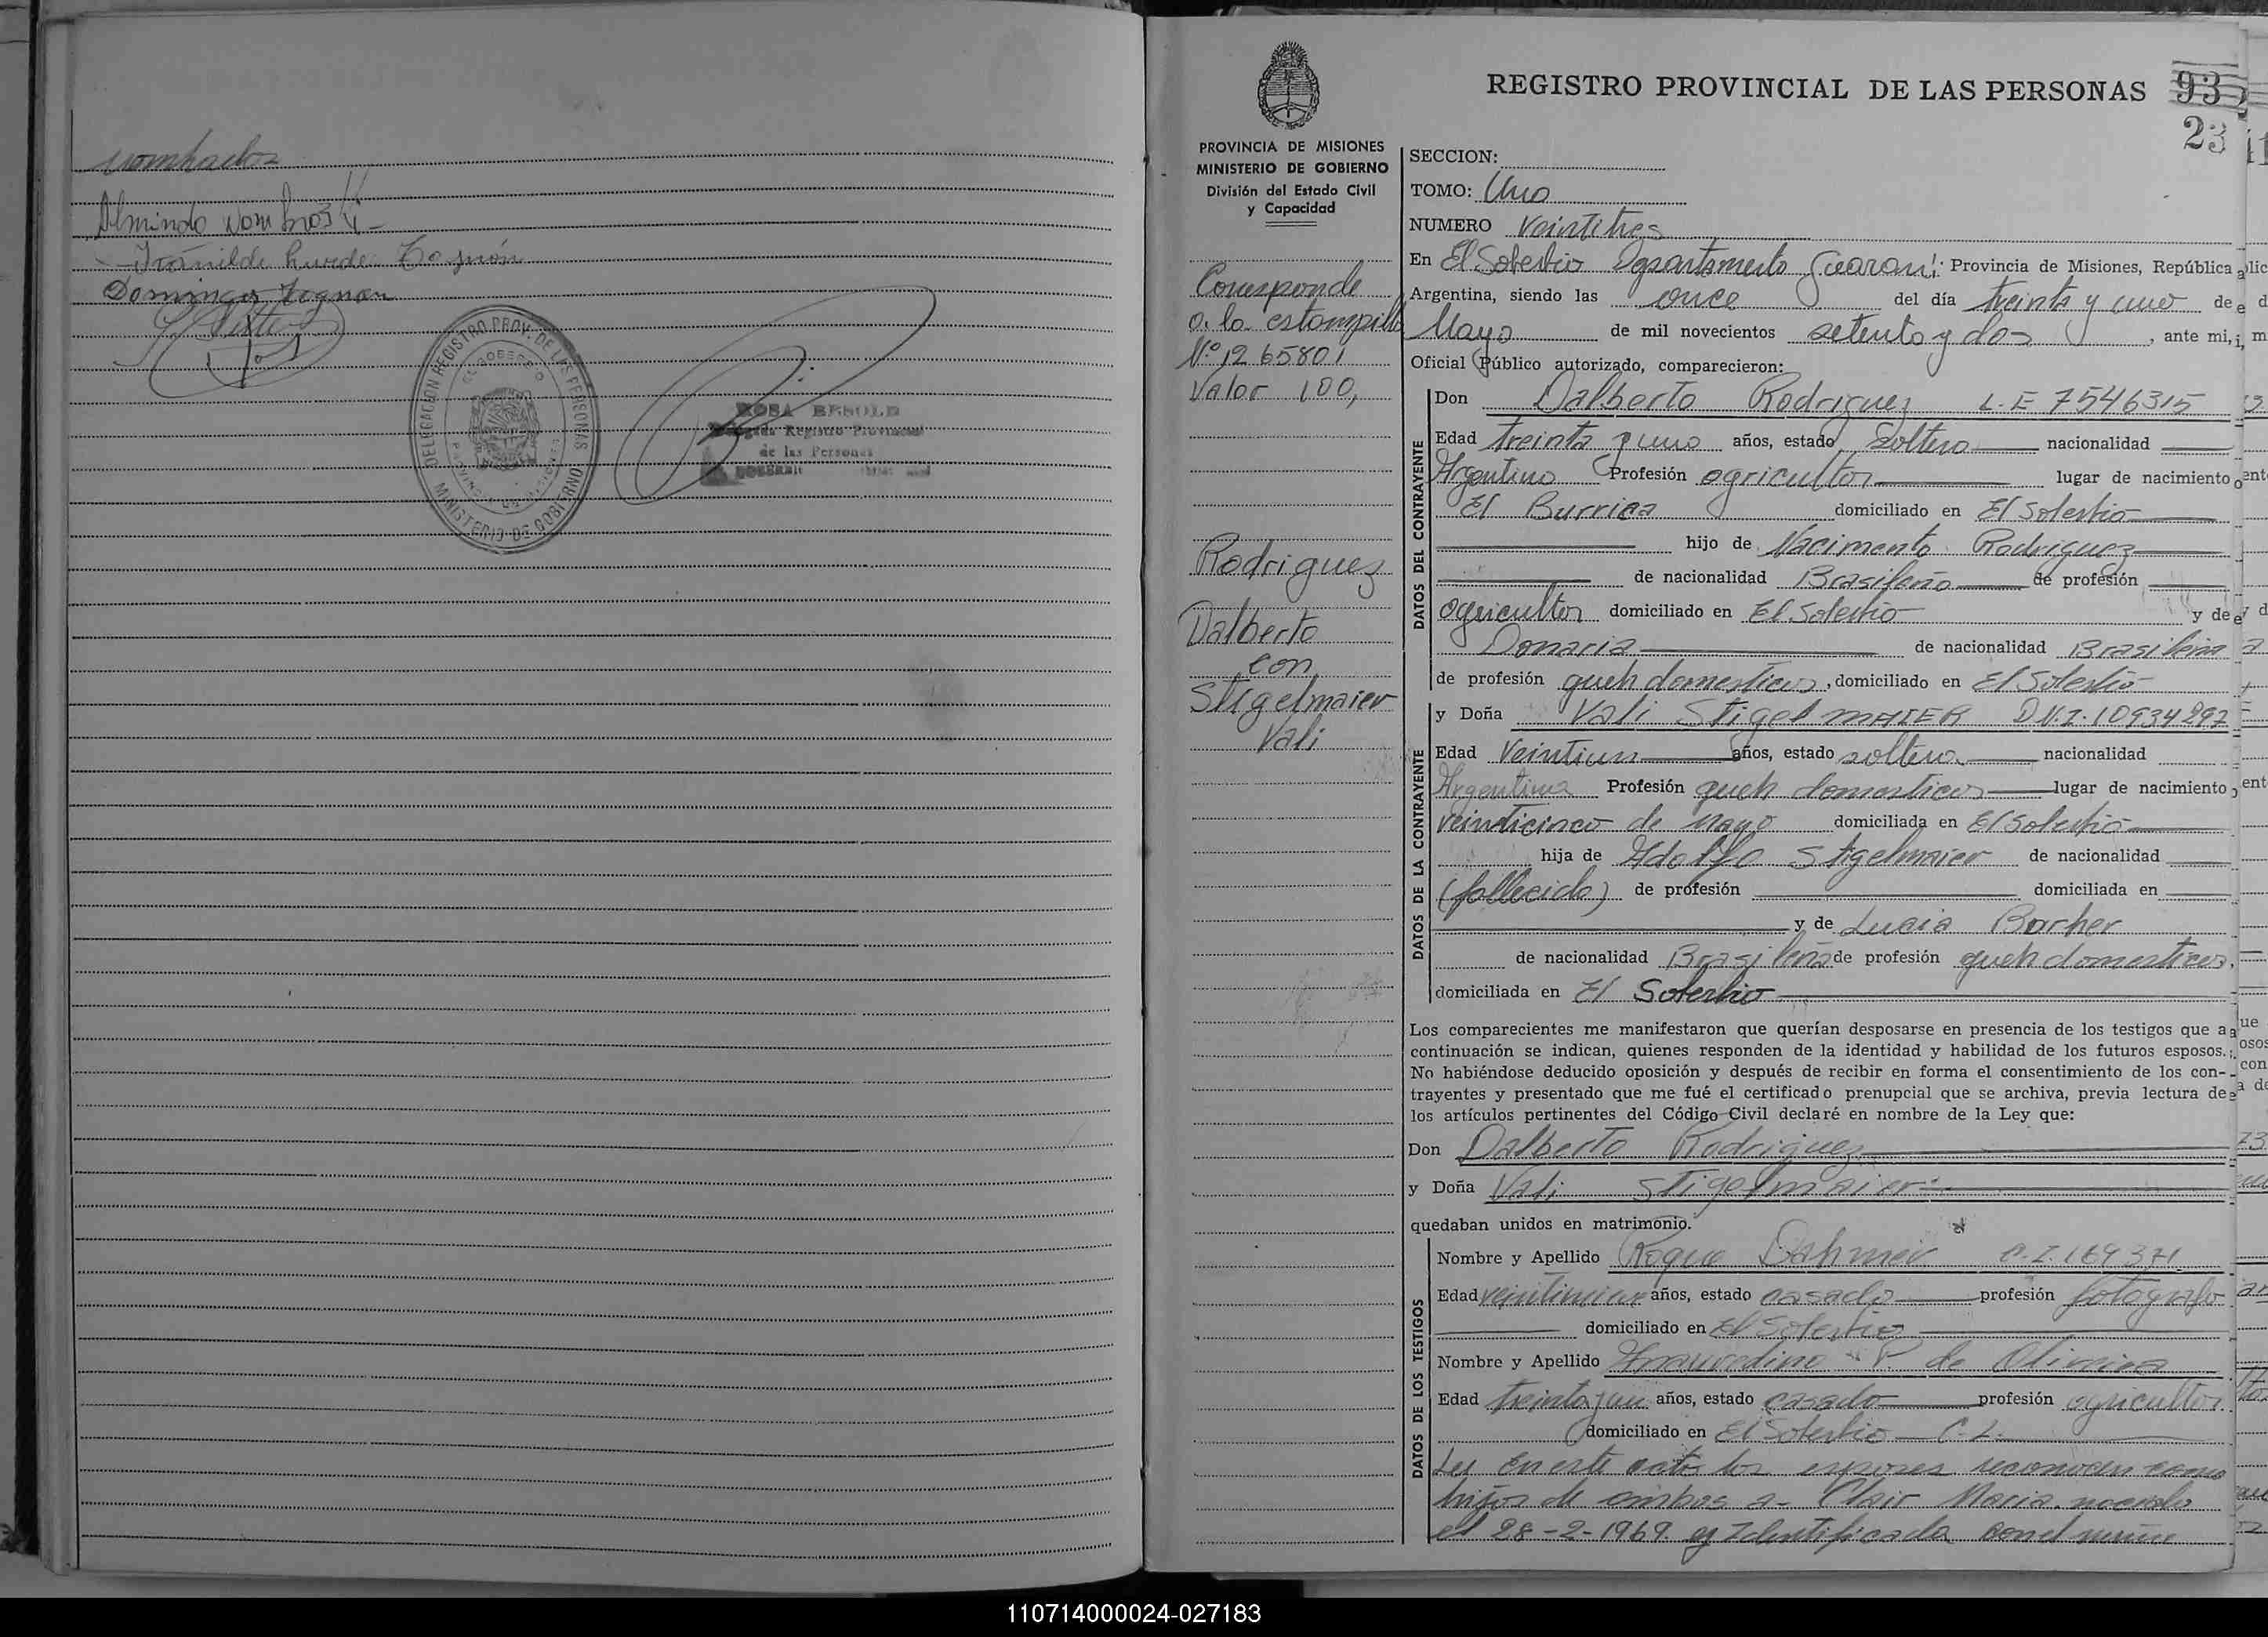 nombrados
Almindo
Domingo
DELEGACION REGISTRO PROV. DE LAS PERSONAS
MINISTERIO DE GOBIERNO
ROSA
Registro Provincial
de las Personas
REGISTRO PROVINCIAL DE LAS PERSONAS 93
23
PROVINCIA DE MISIONES
MINISTERIO DE GOBIERNO
División del Estado Civil
y Capacidad
Corresponde
a la estampilla
Nº 1265801
Valor 100,
Rodriguez
Dalberto
con
Stigelmaier
Vali
SECCION:
TOMO: Uno
NUMERO Veintitres
En El Soberbio Departamento Guaraní: Provincia de Misiones, República
Argentina, siendo las once del día treinta y uno de
Mayo de mil novecientos setenta y dos, ante mi,
Oficial Público autorizado, comparecieron:
DATOS DEL CONTRAYENTE
Don Dalberto Rodriguez L.E 7546315
Edad treinta y uno años, estado soltero nacionalidad
Argentino Profesión agricultor lugar de nacimiento
El Burrica domiciliado en El Soberbio
hijo de Nacimento Rodriguez
de nacionalidad Brasileño de profesión
agricultor domiciliado en El Soberbio y de
Donaria de nacionalidad Brasileña
de profesión queh domesticos, domiciliado en El Soberbio
DATOS DE LA CONTRAYENTE
y Doña Vali StigelMAIER D.N.I. 10934292
Edad Veintiun años, estado soltera nacionalidad
Argentina Profesión queh domesticos lugar de nacimiento
veinticinco de mayo domiciliada en El Soberbio
hija de Adolfo Stigelmaier de nacionalidad
(fallecido) de profesión domiciliada en
y de Lucia Barher
de nacionalidad Brasileña de profesión queh domesticos,
domiciliada en El Soberbio
Los comparecientes me manifestaron que querían desposarse en presencia de los testigos que a
continuación se indican, quienes responden de la identidad y habilidad de los futuros esposos.
No habiéndose deducido oposición y después de recibir en forma el consentimiento de los con-
trayentes y presentado que me fué el certificado prenupcial que se archiva, previa lectura de
los artículos pertinentes del Código Civil declaré en nombre de la Ley que:
Don Dalberto Rodriguez
y Doña Vali Stigelmaier
quedaban unidos en matrimonio.
DATOS DE LOS TESTIGOS
Nombre y Apellido Roque Dahmer C.I. 169371
Edad veintinueve años, estado casado profesión fotografo
domiciliado en El Soberbio
Nombre y Apellido de Oliveira
Edad treinta y un años, estado casado profesión agricultor
domiciliado en El Soberbio C.L.
En este acto los esposos reconocen como
hijos de ambos a- Clair Maria nacida
el 28-2-1969 Identificada con el
110714000024-027183